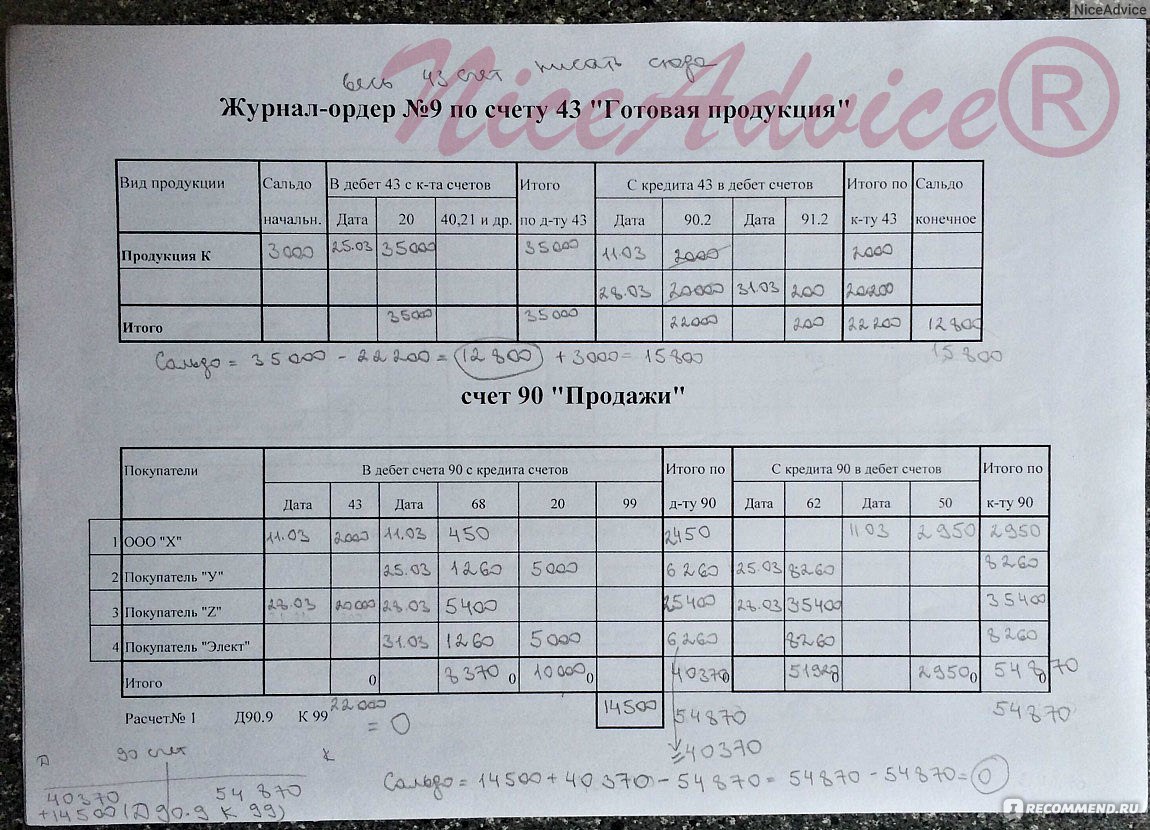 NiceAdvice
NiceAdvice®
весь 43 счет писать сюда
Журнал-ордер №9 по счету 43 "Готовая продукция"
Вид продукции Сальдо начальн. В дебет 43 с к-та счетов Итого по д-ту 43 С кредита 43 в дебет счетов Итого по к-ту 43 Сальдо конечное
Дата 20 40,21 и др. Дата 90.2 Дата 91.2
Продукция К 3000 25.03 35000 35000 11.03 2000 2000
28.03 20000 31.03 200 20200
Итого 35000 35000 22000 200 22200 12800
Сальдо = 35000 - 22200 = 12800 + 3000 = 15800 15800
счет 90 "Продажи"
Покупатели В дебет счета 90 с кредита счетов Итого по д-ту 90 С кредита 90 в дебет счетов Итого по к-ту 90
Дата 43 Дата 68 20 99 Дата 62 Дата 50
1 ООО "Х" 11.03 2000 11.03 450 2450 11.03 2950 2950
2 Покупатель "У" 25.03 1260 5000 6260 25.03 8260 8260
3 Покупатель "Z" 28.03 20000 28.03 5400 25400 28.03 35400 35400
4 Покупатель "Элект" 31.03 1260 5000 6260 8260 8260
Итого 0 8370 0 10000 0 40370 0 51920 0 2950 0 54870 0
Расчет№ 1 Д90.9 К 99 22000 = 0 14500 54870 54870
40370
Д 90 счет К
40370 54870
+14500 (Д 90.9 К 99)
Сальдо = 14500 + 40370 - 54870 = 54870 - 54870 = 0
IRECOMMEND.RU